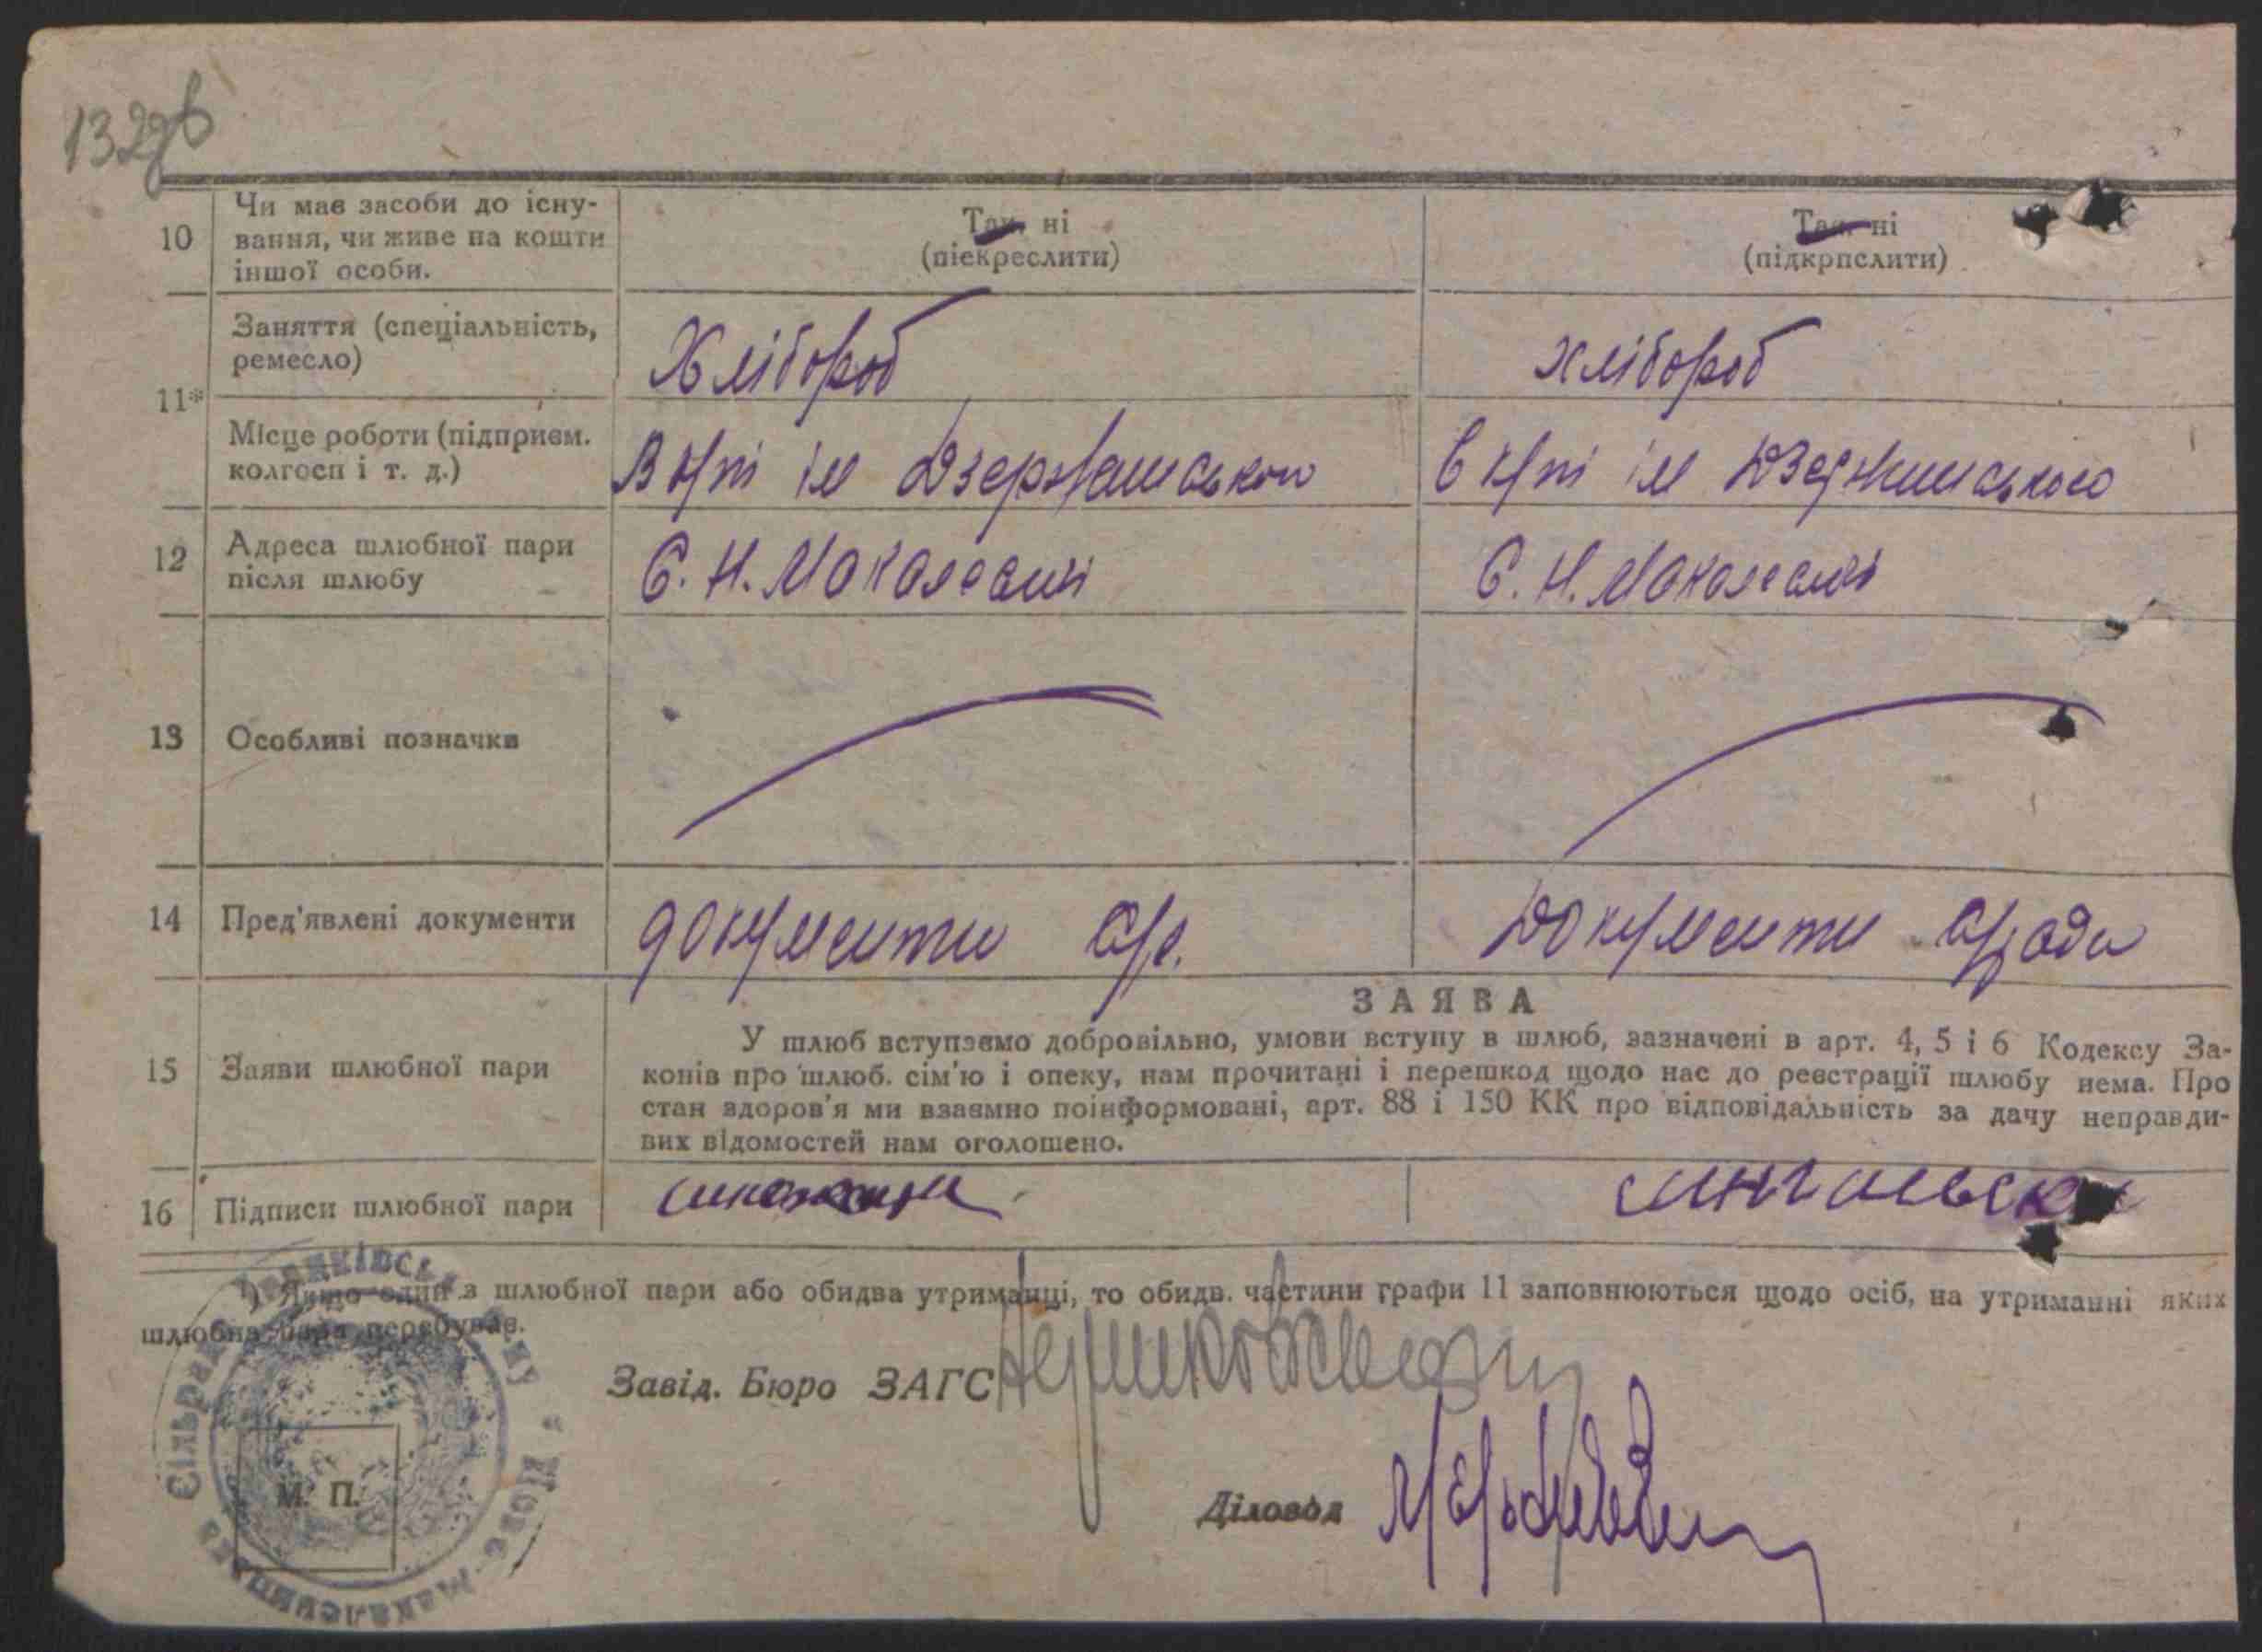 132зв
10 Чи має засоби до існу-
вання, чи живе на кошти
іншої особи.
Так, ні
(піекреслити)
Так, ні
(підкрпслити)
11*
Заняття (спеціальність,
ремесло)
Хлібороб
хлібороб
Місце роботи (підприєм.
колгосп і т. д.)
В к/пі ім Дзержинського
в к/пі ім Дзержинського
12 Адреса шлюбної пари
після шлюбу
С. Н. Мокалеані
С. Н. Мокалеані
13 Особливі позначки
14 Пред'явлені документи
документи с/р.
Документи с/ради
15 Заяви шлюбної пари
ЗАЯВА
У шлюб вступаємо добровільно, умови вступу в шлюб, зазначені в арт. 4, 5 і 6 Кодексу За-
конів про шлюб. сім'ю і опеку, нам прочитані і перешкод щодо нас до реєстрації шлюбу нема. Про
стан здоров'я ми взаємно поінформовані, арт. 88 і 150 КК про відповідальність за дачу неправди-
вих відомостей нам оголошено.
16 Підписи шлюбної пари
) Якщо один з шлюбної пари або обидва утриманці, то обидв. частини графи 11 заповнюються щодо осіб, на утриманні яких
шлюбна пара перебуває.
Завід. Бюро ЗАГС
М. П.
Діловод